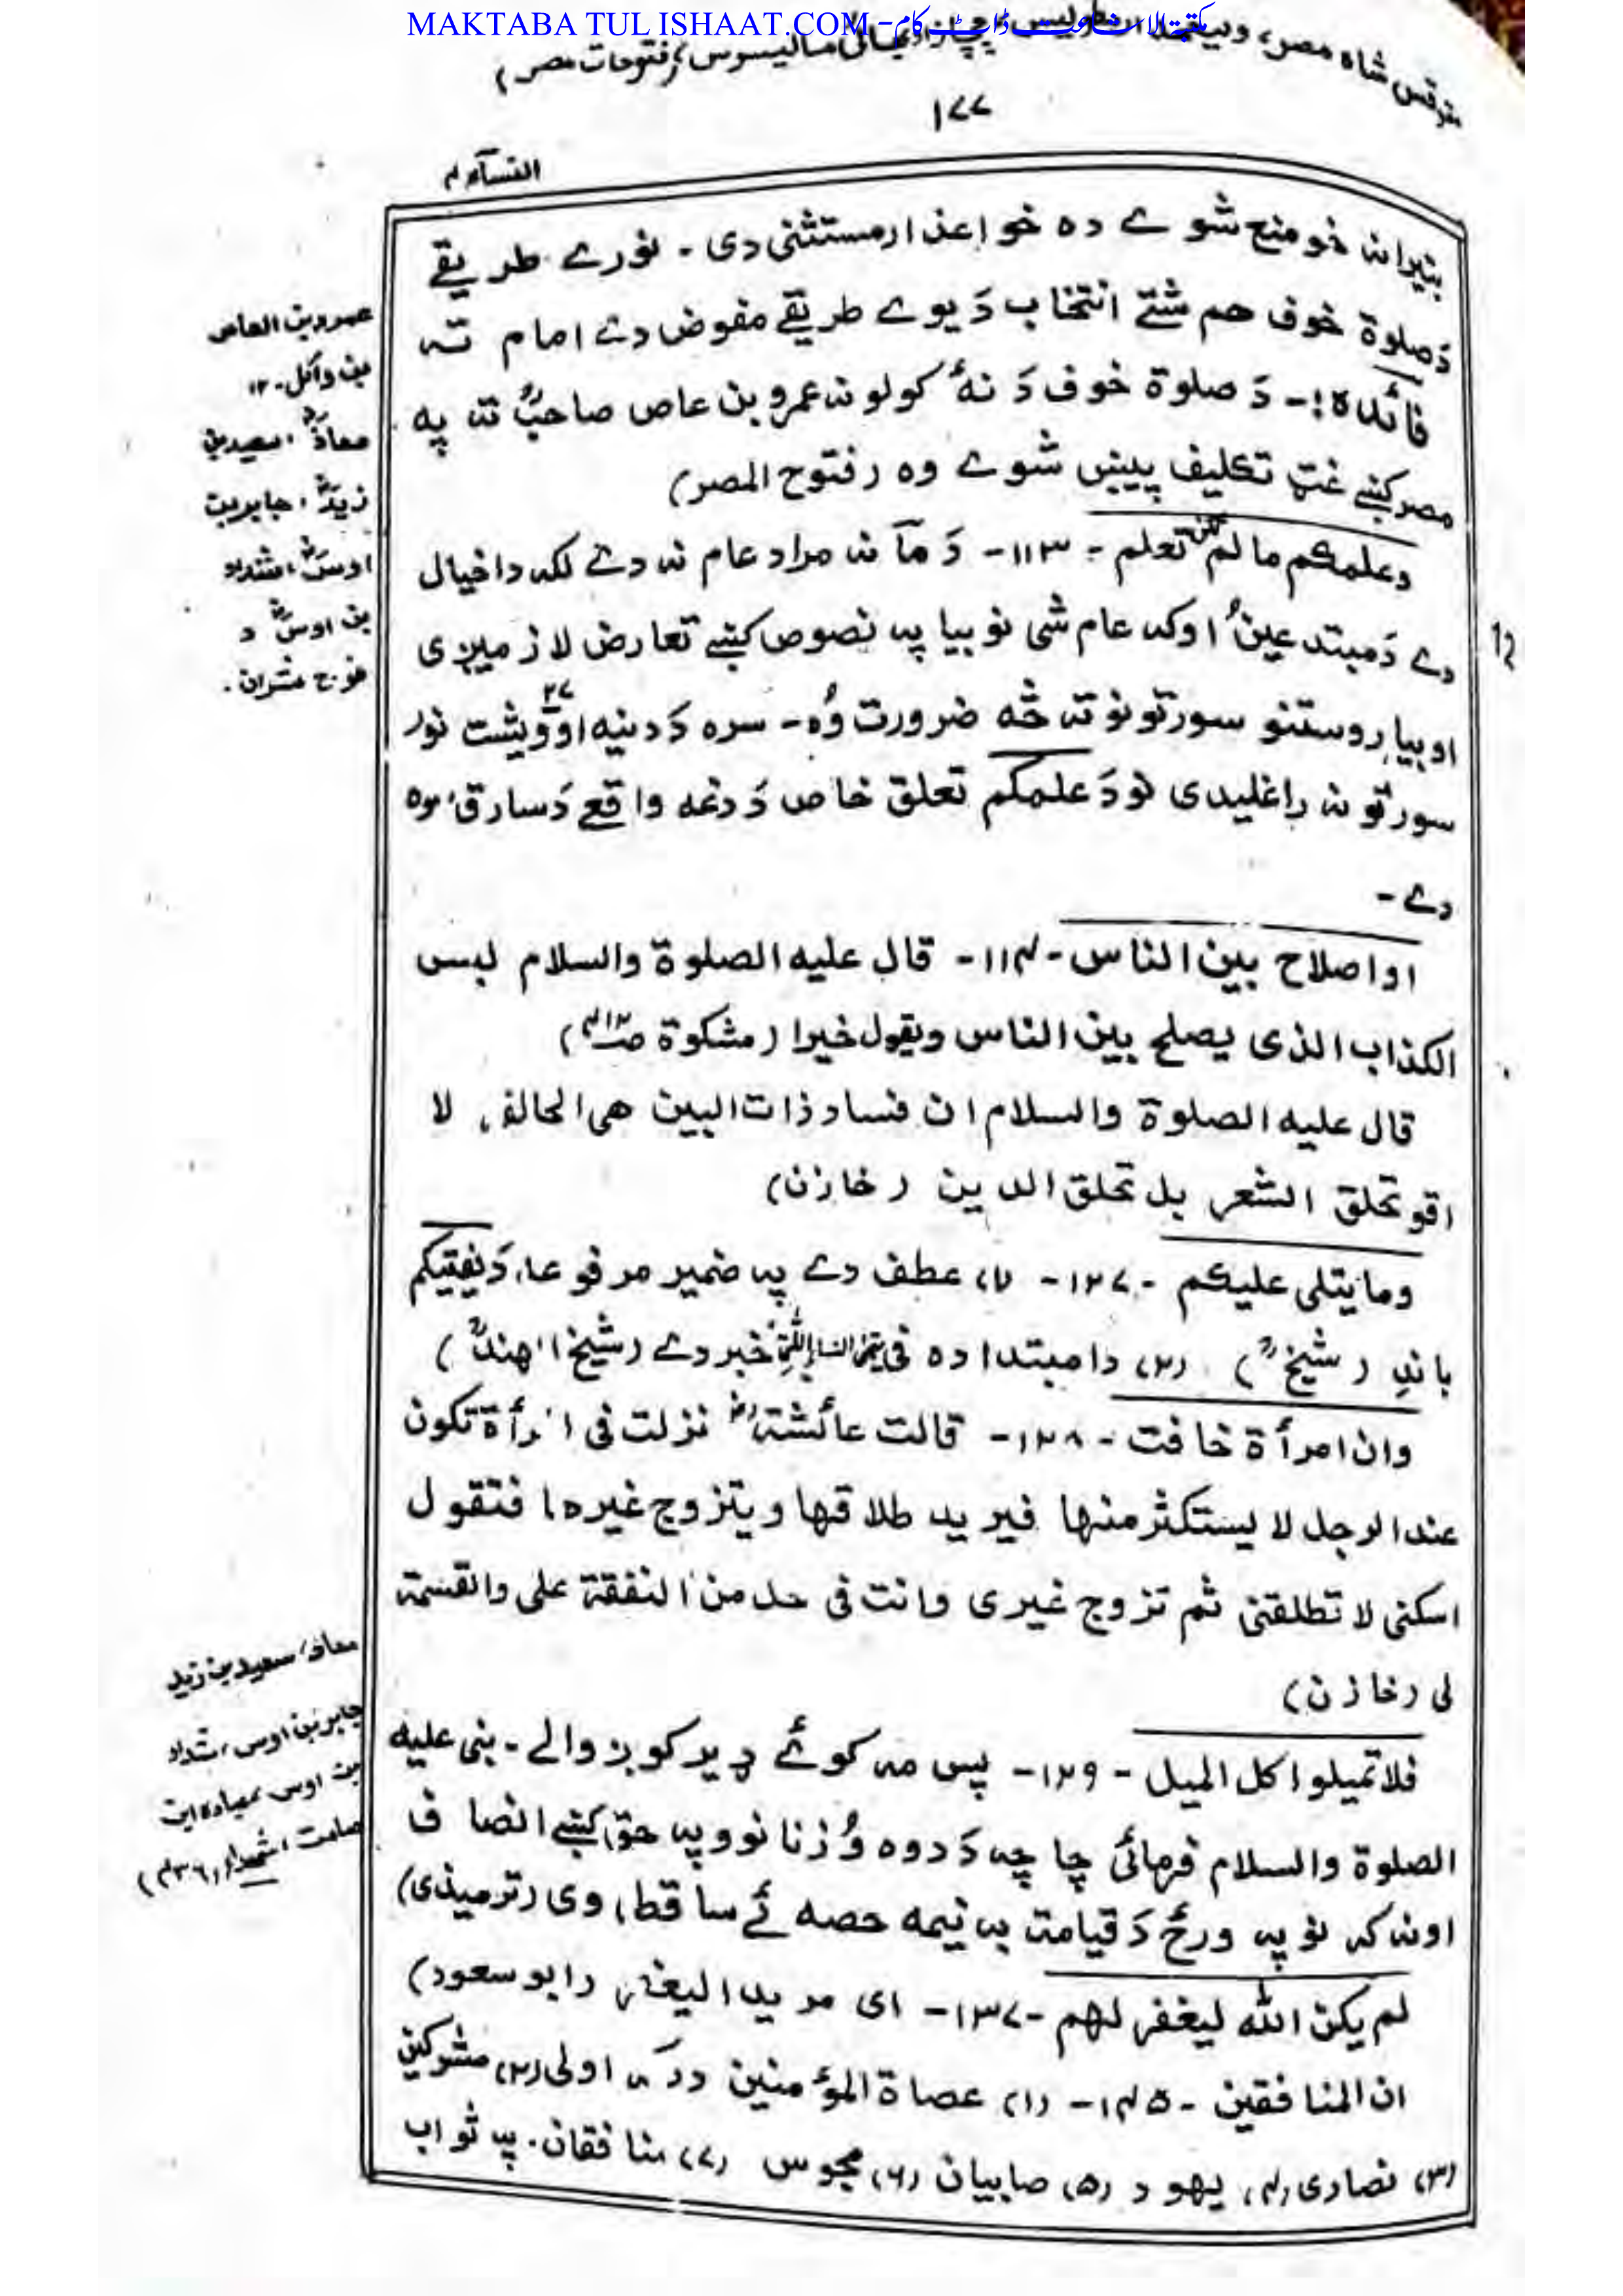 MAKTABA TUL ISHAAT.COM - مکتبۃ الاشاعت ڈاٹ کام
شاہ مصر، (فتوحات مصر)
۱۷۷
النسآء ۴
بتیرانہ خو منع شوے دہ خو اعذار مستثنی دی - نورے طریقے
دَ صلوٰۃ خوف هم شتے انتخاب دَ یوے طریقے مفوض دے امام تہ
فائدہ :- دَ صلوٰۃ خوف دَ نہٴ کولو نہ عمرو بن عاص صاحبؓ تہ پہ
مصر کښے غټ تکلیف پیښ شوے وہ (فتوح المصر)
وعلمکم ما لم تکن تعلم - ۱۱۳ - دَ مآ نہ مراد عام نہ دے لکہ دا خیال
دے دَ مبتدعینُ اوکہ عام شی نو بیا پہ نصوص کښے تعارض لازمیږی
او بیا روستنو سورتونو تہ څہ ضرورت وُہ - سرہ دَ دنیہ اوویشت ۲۷ نور
سورتونہ راغلیدی نو دَ علمکم تعلق خاص دَ دغہ واقعے دَ سارق سرہ
دے -
او اصلاح بین الناس - ۱۱۴ - قال علیہ الصلوٰۃ والسلام لیس
الکذاب الذی یصلح بین الناس ویقول خیرا (مشکوٰۃ ص۴۱۲)
قال علیہ الصلوٰۃ والسلام ان فساد ذات البین ھی الحالقہ لا
اقو تحلق الشعر بل تحلق الدین (خازن)
وما یتلی علیکم - ۱۲۷ - (۱) عطف دے پہ ضمیر مرفوعاً دَ یفتیکم
باندِ (شیخؒ) (۲) دا مبتدا دہ فی یتٰمی النسآء الّٰتی خبر دے (شیخ الھندؒ)
وان امرأۃ خافت - ۱۲۸ - قالت عائشۃؓ نزلت فی امرأۃ تکون
عند الرجل لا یستکثر منھا فیرید طلاقھا ویتزوج غیرھا فتقول
اسکنی لا تطلقنی ثم تزوج غیری وانت فی حل من النفقۃ علی والقسمۃ
لی (خازن)
فلا تمیلوا کل المیل - ۱۲۹ - پس مہ کوئے ډیر کوږوالے - نبی علیہ
الصلوٰۃ والسلام فرمائی چا چہ دَ دوہ وُ زنانوو پہ حق کښے انصاف
اونہ کہ نو پہ ورځ دَ قیامت بہ نیمہ حصہ ئے ساقطہ وی (ترمیذی)
لم یکن اللہ لیغفر لھم - ۱۳۷ - ای مریدا لیغفر (ابو سعود)
ان المنافقین - ۱۴۵ - (۱) عصاۃ المؤمنین درکہ اولی (۲) مشرکین
(۳) نصاری (۴) یھود (۵) صابیان (۶) مجوس (۷) منافقان. پہ ثواب
عمرو بن العاص
بن وآئل - ۱۲
معاذؓ، سعید بن
زیدؓ، جابر بن
اوسؓ، شداد
بن اوسؓ د
فوج مشران.
معاذ، سعید بن زید
جابر بن اوس، شداد
بن اوس، عبادہ ابن
صامت
12